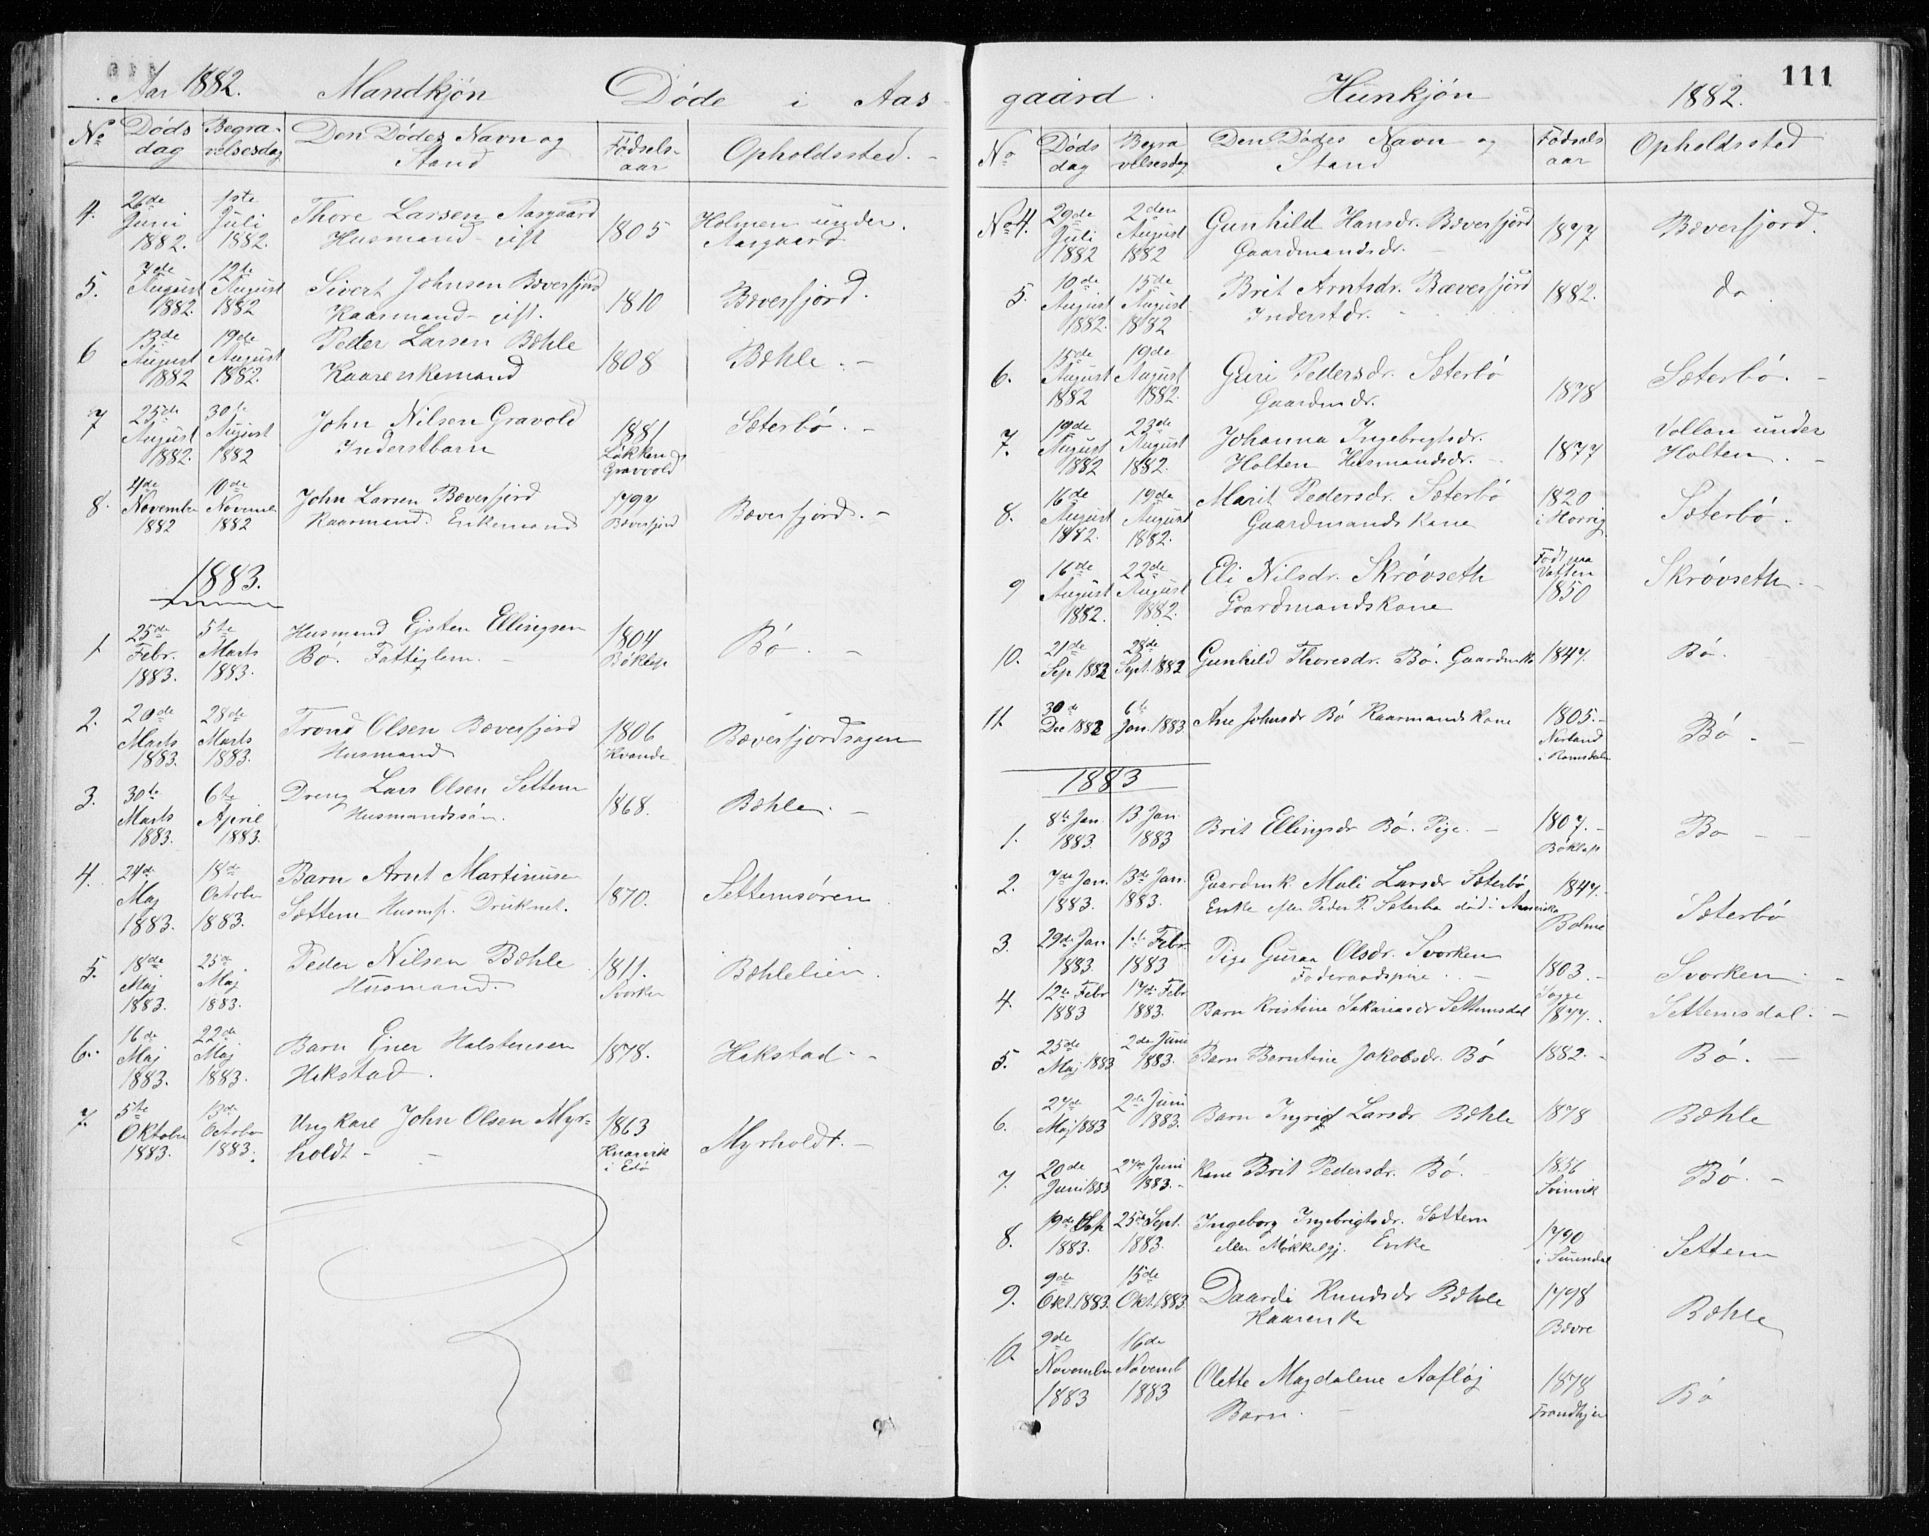 Aar 1882. Mandkjön Döde i Aas-
No Döds dag Begravelsesdag Den Dödes Navn og Stand Fødselsaar Opholdssted.
4. 26de Juni 1882. 1ste Juli 1882. Thore Larsen Aasgaard Husmand gift 1805 Holmen under Aasgaard
5. 7de August 1882. 12te August 1882 Sivert Johnsen Bæverfjord Kaarmand gift. 1810 Bæverfjord.
6 13de August 1882 19de August 1882. Peder Larsen Bæhle Kaarenkemand 1808 Bæhle.
7 25de August 1882. 30te August 1882 John Nilsen Gravold Inderstbarn 1881 Løkken Gravvold Sæterbö.
8. 4de November 1882 10de November 1882 John Larsen Bæverfjord Kaarmand Enkemand 1797 Bæverfjord Bæverfjord.
1883.
1 25de Febr. 1883. 5te Marts 1883. Husmand Ejsten Ellingsen Bö. Fattiglem. 1804 Böklep Bö.
2. 20de Marts 1883. 28de Marts 1883. Trond Olsen Bæverfjord Husmand 1806 Kvande Bæverfjordsagen
3. 30te Marts 1883. 6te April 1883. Dreng Lars Olsen Settem Husmandssön. 1868. Bæhle.
4. 24de Maj 1883. 18de October 1883. Barn Arnt Martinusen Sættem Husmf. Druknet. 1870. Settemsören
5. 18de Maj 1883. 25de Maj 1883. Peder Nilsen Bæhle Husmand. 1811. Svorken Bæhlelien.
6. 16de Maj 1883. 22de Maj 1883. Barn Ener Halstensen Hakstad. 1878. Hakstad
7. 5te Oktober 1883. 13de October 1883. Ungkarl John Olsen Myrholdt 1863 Knarvik i Edö Myrholdt.
111
gaard. Hunkjön 1882.
No Döds dag Begravelsesdag Den Dödes Navn og Stand Fødselsaar Opholdssted
No 4. 29de Juli 1882 2den August 1882 Gunhild Hansdr. Bæverfjord Gaardmandsdr. 1877 Bæverfjord.
5. 10de August 1882. 15de August 1882 Brit Arntsdr. Bæverfjord Inderstdr. 1882. do
6. 15de August 1882 19de August 1882. Guri Pedersdr. Sæterbö Gaardmdr. 1878 Sæterbö.
7. 19de August 1882 23de August 1882. Johanna Ingebrigtsdr. Holten Husmandsdr. 1877 Vollan under Holten.
8. 16de August 1882. 19de August 1882. Marit Pedersdr. Sæterbö Gaardmandskone 1820 i Horrig Sæterbö.
9 16de August 1882. 22de August 1882. Eli Nilsdr. Skrövseth Gaardmandskone Född paa 1850 Skrövseth
10. 21de Sep 1882 28de Sept. 1882 Gunhild Thoresdr. Bö. Gaardmk. 1847. Bö.
11 30de Dec 1882 6te Jan. 1883 Ane Johnsdr Bö Kaarmandskone 1805. i Romsdalen Bö.
1883
1. 8de Jan. 1883. 13 Jan 1883 Brit Ellingsdr Bö. Pige. 1807. Böklep Bö
2. 7de Jan. 1883. 13de Jan. 1883. Gaardmk. Mali Larsdr Sæterbö Enke efter Peder P. Sæterbø död i Amerika 1847. Bolme Sæterbö
3. 29de Jan 1883. 1ste Febr. 1883 Pige Guraa Olsdr. Svorken Föderaadspige. 1803. Svorken
4. 12te Febr 1883 17de Febr 1883. Barn Kristine Sakariasdr Settemsdal 1877. Settemsdal.
5. 25de Maj 1883 2den Juni 1883. Barn Berntine Jakobsdr. Bö 1882. Bö.
6. 27de Maj 1883 2den Juni 1883. Barn Ingrid Larsdr Bæhle 1878 Bæhle
7. 20de Juni 1883 27de Juni 1883. Kone Brit Pedersdr. Bö. 1856 Svinvik Bö.
8. 19de Sep 1883. 25de Sept. 1883. Ingeborg Ingebrigtsdr. Sættem eller Mökkelgj. Enke 1790 i Surendal Settem
9. 9de Okt. 1883. 15de Okt. 1883. Daardi Knudsdr Bæhle Kaarenke 1798 Bævre Bæhle
10. 9de November 1883 16de Novemb 1883 Olette Magdalene Aaflöj Barn. 1878 Trondhjem Bö